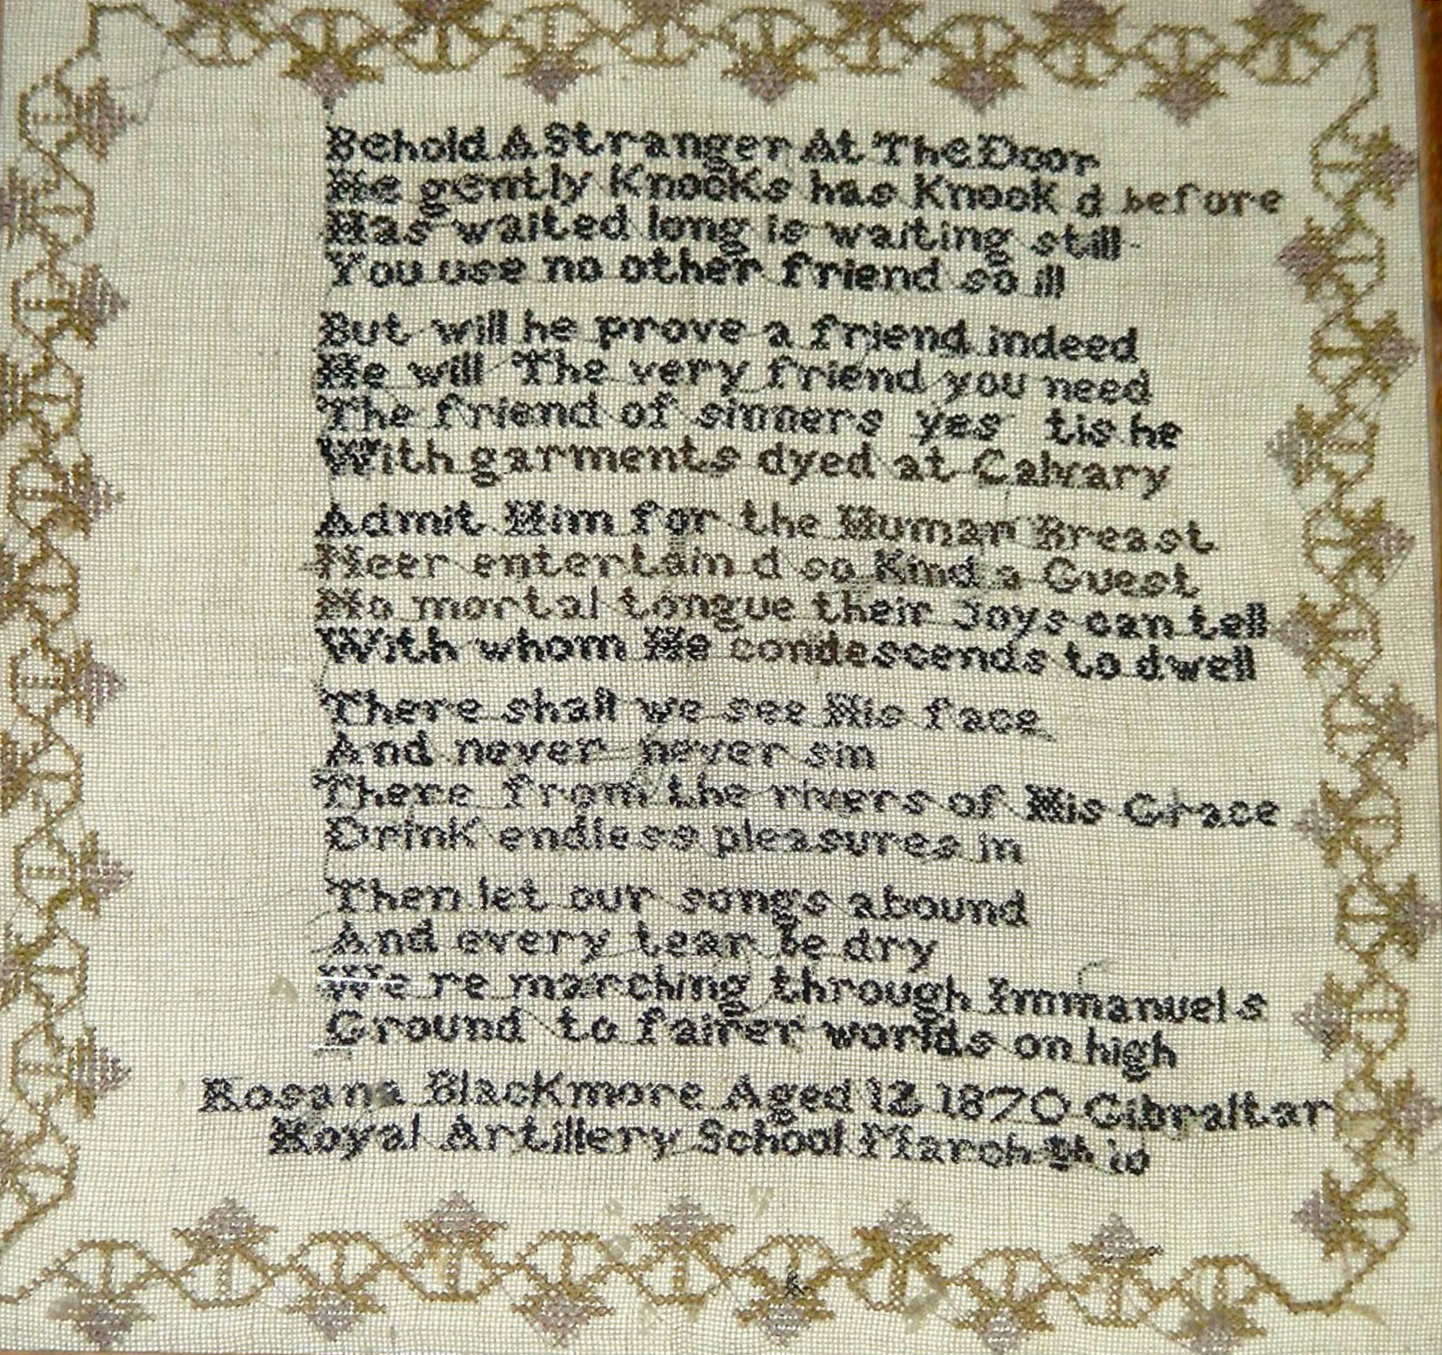 Behold A Stranger At The Door
He gently Knocks has Knock d before
Has waited long is waiting still
You use no other friend so ill
But will he prove a friend indeed
He will The very friend you need
The friend of sinners yes tis he
With garments dyed at Calvary
Admit Him for the Human Breast
Neer entertain d so Kind a Guest
No mortal tongue their Joys can tell
With whom He condescends to dwell
There shall we see His face
And never never sin
There from the rivers of His Grace
Drink endless pleasures in
Then let our songs abound
And every tear be dry
We re marching through Immanuel s
Ground to fairer worlds on high
Rosana Blackmore Aged 12 1870 Gibraltar
Royal Artillery School March